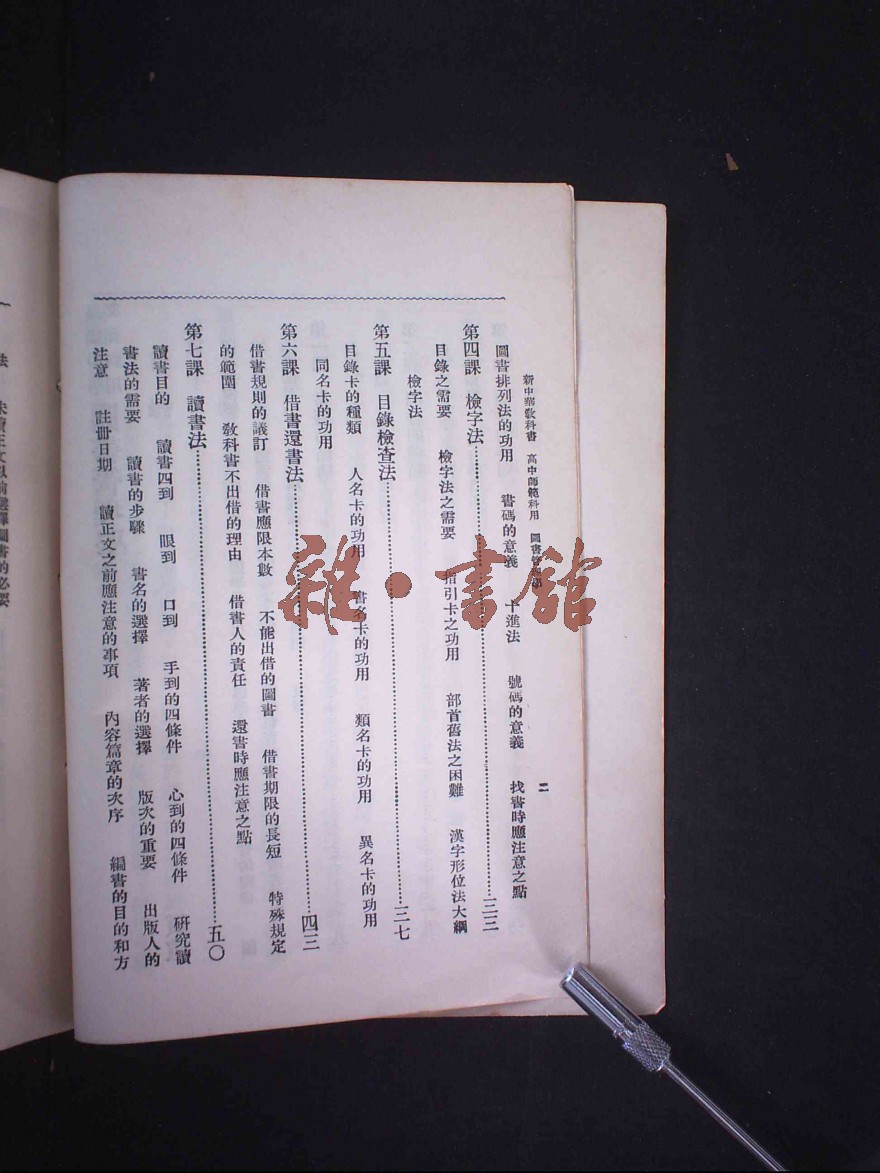 新中華敎科書　高中師範科用　圖書管理學
二
圖書排列法的功用　書碼的意義　十進法　號碼的意義　找書時應注意之點
第四課　檢字法……三三
目錄之需要　檢字法之需要　指引卡之功用　部首舊法之困難　漢字形位法大綱
檢字法
第五課　目錄檢查法……三七
目錄卡的種類　人名卡的功用　書名卡的功用　類名卡的功用　異名卡的功用
同名卡的功用
第六課　借書還書法……四三
借書規則的議訂　借書應限本數　不能出借的圖書　借書期限的長短　特殊規定
的範圍　敎科書不出借的理由　借書人的責任　還書時應注意之點
第七課　讀書法……五〇
讀書目的　讀書四到　眼到　口到　手到的四條件　心到的四條件　研究讀
書法的需要　讀書的步驟　書名的選擇　著者的選擇　版次的重要　出版人的
注意　註冊日期　讀正文之前應注意的事項　內容篇章的次序　編書的目的和方
法　未讀正文以前選擇圖書的必要
雜·書館